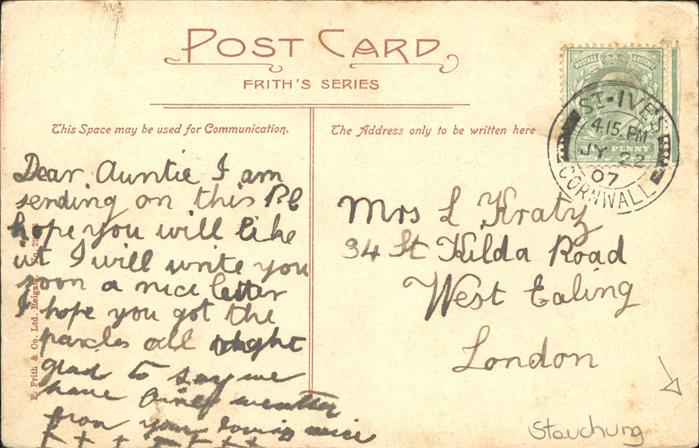 POST CARD
FRITH'S SERIES
This Space may be used for Communication.
The Address only to be written here
ST-IVES
4.15.PM
JY 22
07
CORNWALL
PENNY
Dear Auntie I am
sending on this PC
hope you will like
it I will write you
soon a nice letter
I hope you got the
parcles all right
glad to say we
have weather
from your niece
Mrs L Kraty
34 St Kilda Road
West Ealing
London
Stauchung
F. Frith & Co. Ltd. Reigate.